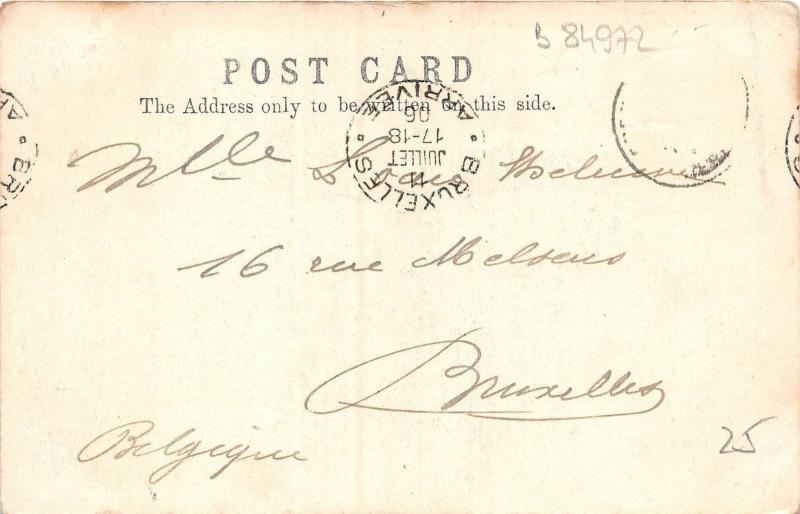 B 84972
POST CARD
The Address only to be written on this side.
BRUXELLES
ARRIVEE
11
JUILLET
17-18
06
Mlle
16 rue Melsens
Bruxelles
Belgique
25